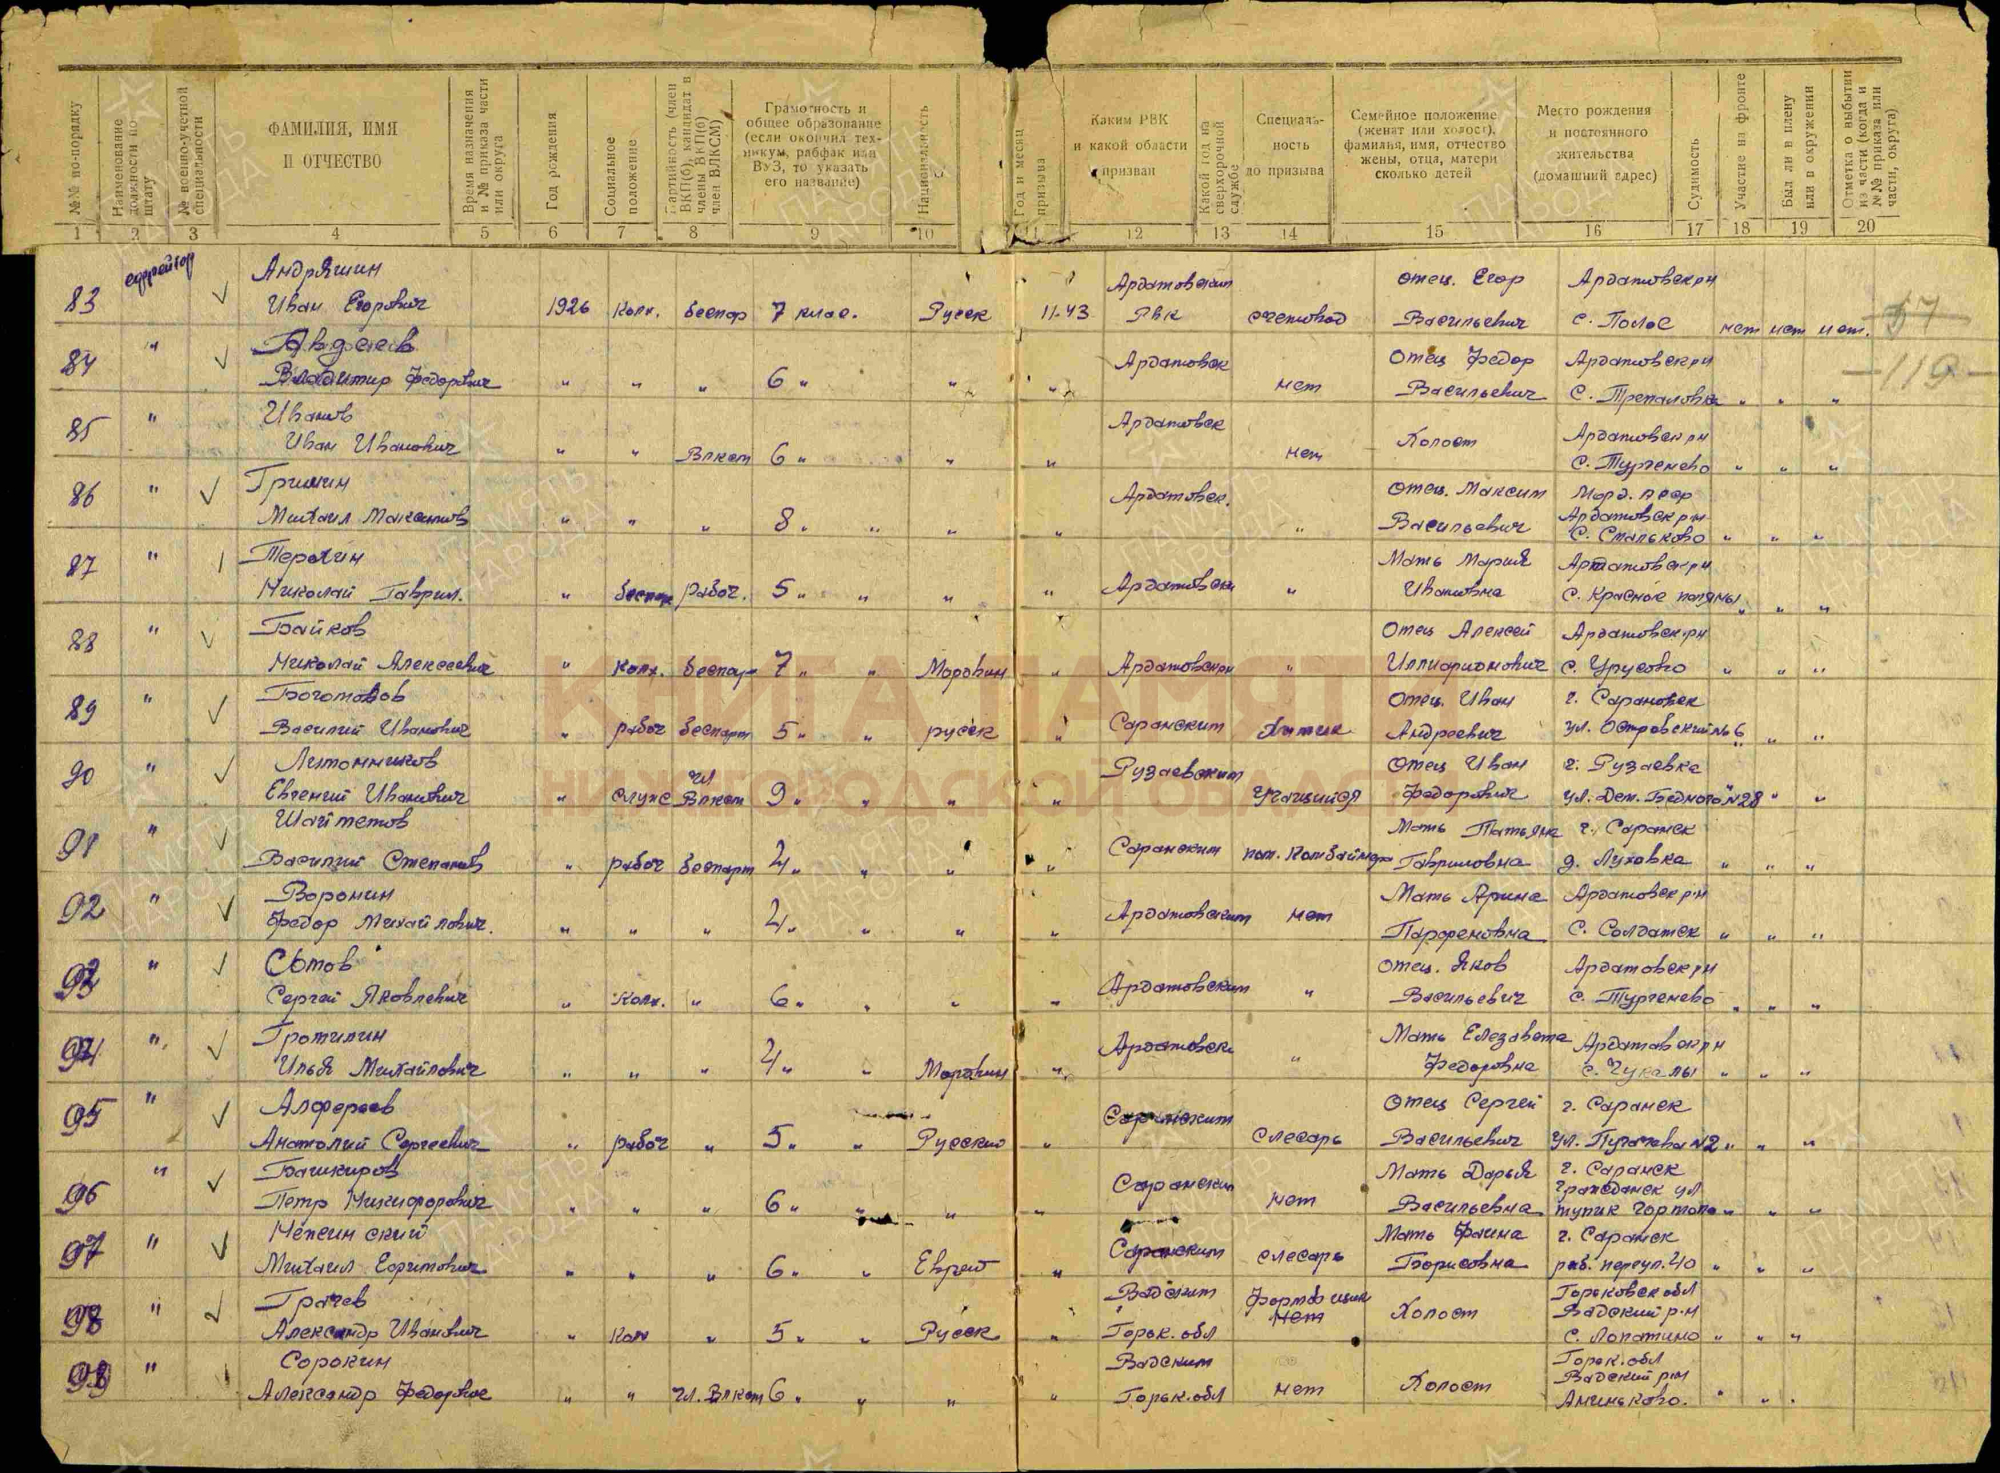 №№ по-порядку
Наименование должности по штату
№ военно-учетной специальности
ФАМИЛИЯ, ИМЯ И ОТЧЕСТВО
Время назначения и № приказа части или округа
Год рождения
Социальное положение
Партийность (член ВКП(б), кандидат в члены ВКП(б) член ВЛКСМ)
Грамотность и общее образование (если окончил техникум, рабфак или ВУЗ, то указать его название)
Национальность
Год и месяц призыва
Каким РВК и какой области призван
Какой год на сверхсрочной службе
Специальность до призыва
Семейное положение (женат или холост), фамилия, имя, отчество жены, отца, матери сколько детей
Место рождения и постоянного жительства (домашний адрес)
Судимость
Участие на фронте
Был ли в плену или в окружении
Отметка о выбытии из части (когда и № приказа или части, округа)
1 2 3 4 5 6 7 8 9 10 11 12 13 14 15 16 17 18 19 20
ефрейтор Андряшин Ардатовским отец. Егор Ардатовск рн
83 Иван Егорович 1926 Колх. беспар 7 клас. Русск 11.43 РВК счетовод Васильевич с. Полое нет нет нет. 57
84 " Авдеев Ардатовск Отец Федор Ардатовск рн
Владимир Федорович " " " 6 " " " нет Васильевич с. " " " 119
85 " Иванов Ардатовск Ардатовск рн
Иван Иванович " " Влксм 6 " " " нет Холост с. Тургенево " " "
86 " Гришин Ардатовск. Отец. Максим Морд. АССР
Михаил Максимов " " " 8 " " " " " Васильевич Ардатовск рн
с. Смальково " " "
87 " Терехин Мать Мария Ардатовск рн
Николай Гаврил. " беспар рабоч. 5 " " " " Ардатовск " Ивановна с. Красные поляны " " "
88 " Байков Отец Алексей Ардатовск. рн
Николай Алексеевич " колх. беспар 7 " " Мордвин " Ардатовск " Илларионович с. Урусово " " "
89 " Отец. Иван г. Саранск
Василий Иванович " рабоч беспарт 5 " " русск " Саранским Андреевич ул. Островский № 6 " " "
90 " Литомников Рузаевским Отец Иван г. Рузаевка
Евгений Иванович " служ чл Влксм 9 " " " " учащийся Федорович ул. Дем. Бедного № 28 " "
91 " Шайметов Мать Татьяна г. Саранск
Василий Степанов " рабоч беспарт 4 " " " " Саранским пом. комбайнера Гавриловна д. Луховка " " "
92 " Воронин Мать Арина Ардатовск рн
Федор Михайлович. " " " 4 " " " " Ардатовским нет Парфеновна с. Солдатск " " "
93 " Сытов Отец. Яков Ардатовск рн
Сергей Яковлевич " Колх. " 6 " " " " Ардатовским " Васильевич с. Тургенево " " "
94 " Мать Елезавета Ардатовск рн
Илья Михайлович " " " 4 " " Мордвин " Ардатовск " Федоровна с. Чукалы " " "
95 " Алферьев Саранским Отец Сергей г. Саранск
Анатолий Сергеевич " рабоч " 5 " " Русский " слесарь Васильевич ул. Пугачева № 2 " " "
96 " Башкиров Саранским Мать Дарья г. Саранск
Петр Никифорович " " " 6 " " " " нет Васильевна Гражданск ул
тупик Гортопа " " "
97 " Нежинский Саранским Мать Фаина г. Саранск
Михаил Ефимович " " " 6 " " Еврей " слесарь Борисовна раб. переул. 40 " " "
98 " Грачев Вадским Горьковск обл
Александр Иванович " Кол " 5 " " Русск " Горьк. обл нет Холост Вадский р-н
с. Лопатино " " "
99 " Сорокин Вадским Горьк. обл
Александр Федорович " " чл. Влксм 6 " " " " Горьк. обл нет Холост Вадский рн
Аниньково. " " "
КНИГА ПАМЯТИ
НИЖЕГОРОДСКОЙ ОБЛАСТИ
ПАМЯТЬ НАРОДА